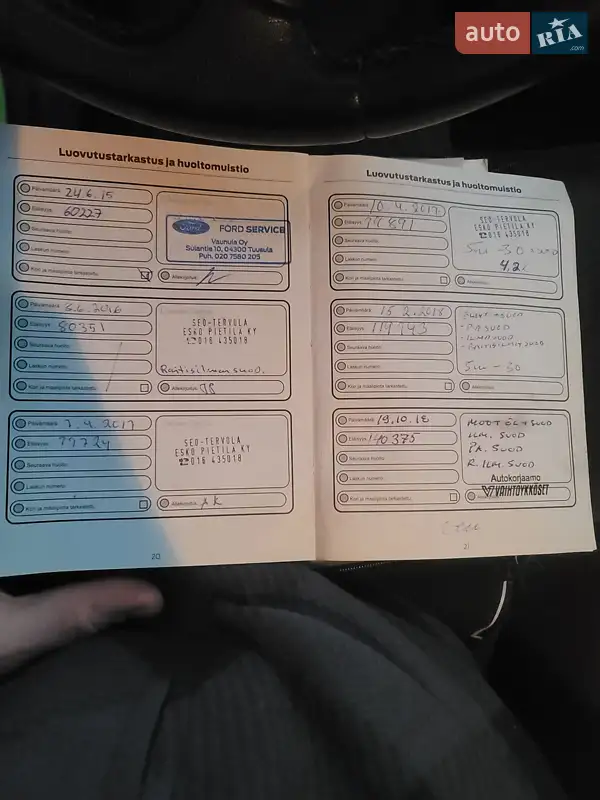 auto RIA .com
Luovutustarkastus ja huoltomuistio
Päivämäärä 24.6.15
Etäisyys 60227
Seuraava huolto
Laskun numero
Kori ja maalipinta tarkastettu
Ford FORD SERVICE
Vaunula Oy
Sulantie 10, 04300 Tuusula
Puh. 020 7580 205
Allekirjoitus
Päivämäärä 6.6.2016
Etäisyys 80351
Seuraava huolto
Laskun numero
Kori ja maalipinta tarkastettu
SEO-TERVOLA
ESKO PIETILA KY
☎016 435018
Raitisilmansuod.
Allekirjoitus
Päivämäärä 7.4.2017
Etäisyys 99724
Seuraava huolto
Laskun numero
Kori ja maalipinta tarkastettu
SEO-TERVOLA
ESKO PIETILA KY
☎016 435018
Allekirjoitus
20
Luovutustarkastus ja huoltomuistio
Päivämäärä 10.4.2017
Etäisyys 99891
Seuraava huolto
Laskun numero
Kori ja maalipinta tarkastettu
SEO-TERVOLA
ESKO PIETILA KY
☎016 435018
5w 30
4,2
Allekirjoitus
Päivämäärä 15.2.2018
Etäisyys 119743
Seuraava huolto
Laskun numero
Kori ja maalipinta tarkastettu
- PA SUOD
- ILMA SUOD
- RAITISILMA SUOD
5w-30
Allekirjoitus
Päivämäärä 19.10.18
Etäisyys 140375
Seuraava huolto
Laskun numero
Kori ja maalipinta tarkastettu
MOOT ÖL+SUOD
ILM. SUOD
PA. SUOD
R. ILM. SUOD
Autokorjaamo
VAIHTOYKKÖSET
21